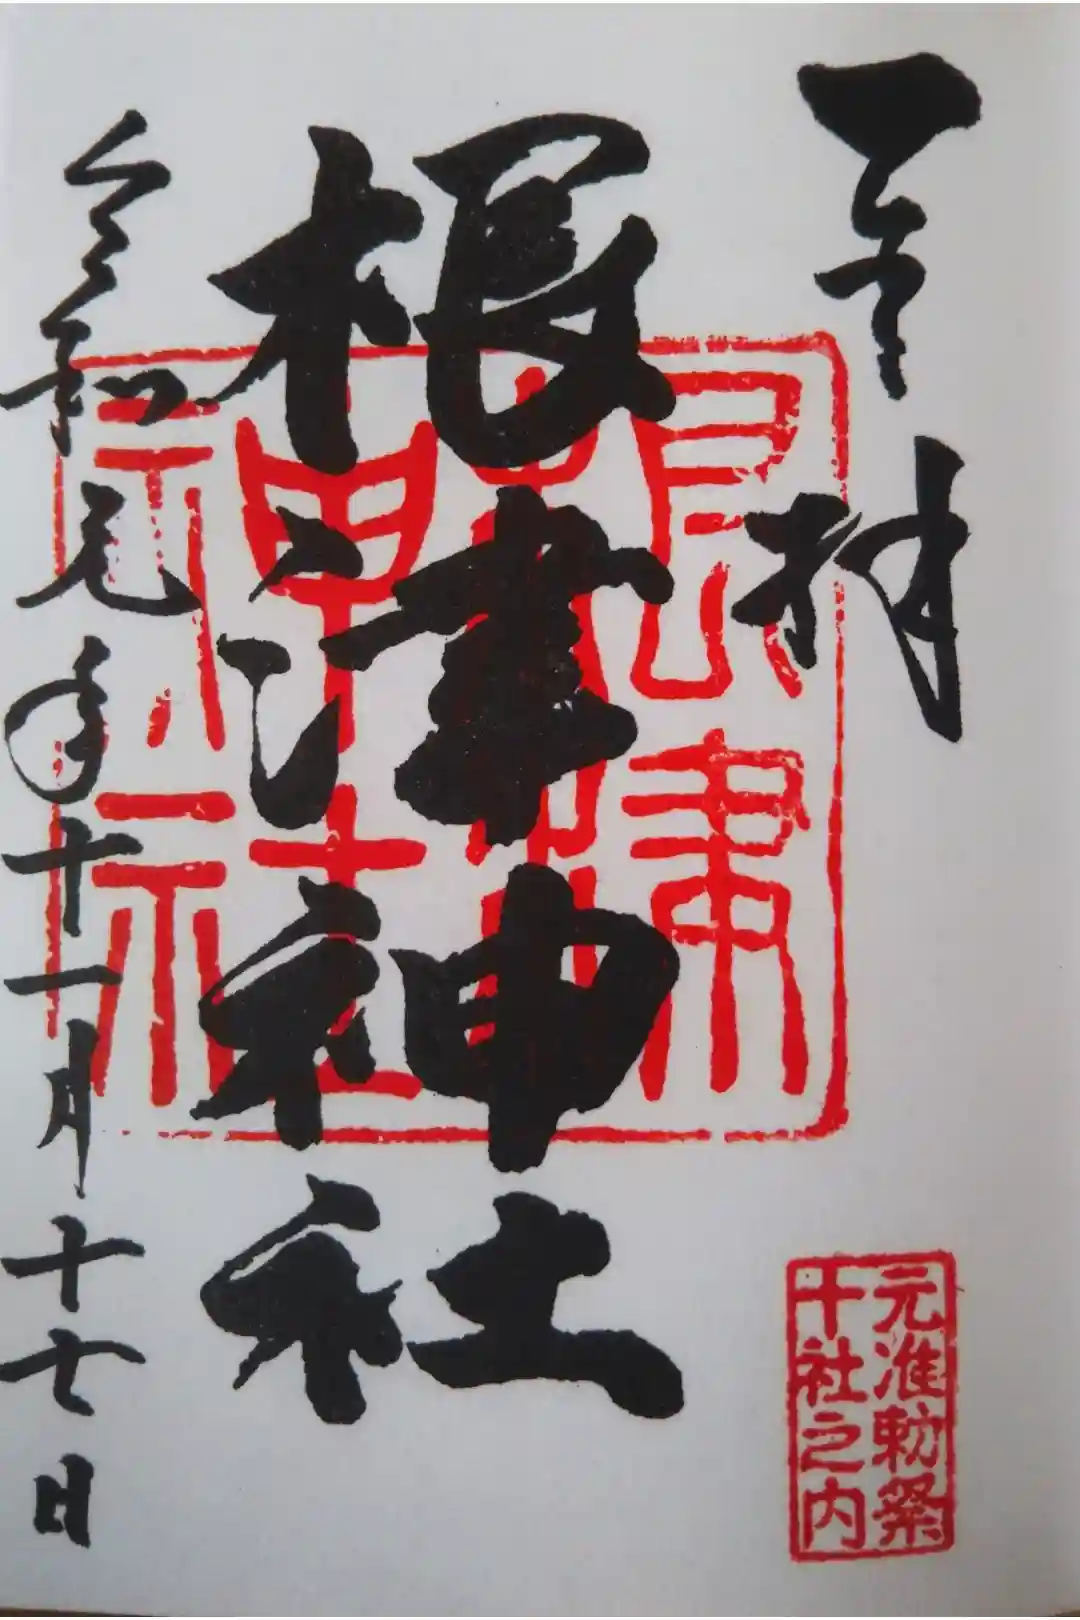 奉拝
根津神社
令和元年十一月十七日
根津神社
元准勅祭
十社之内